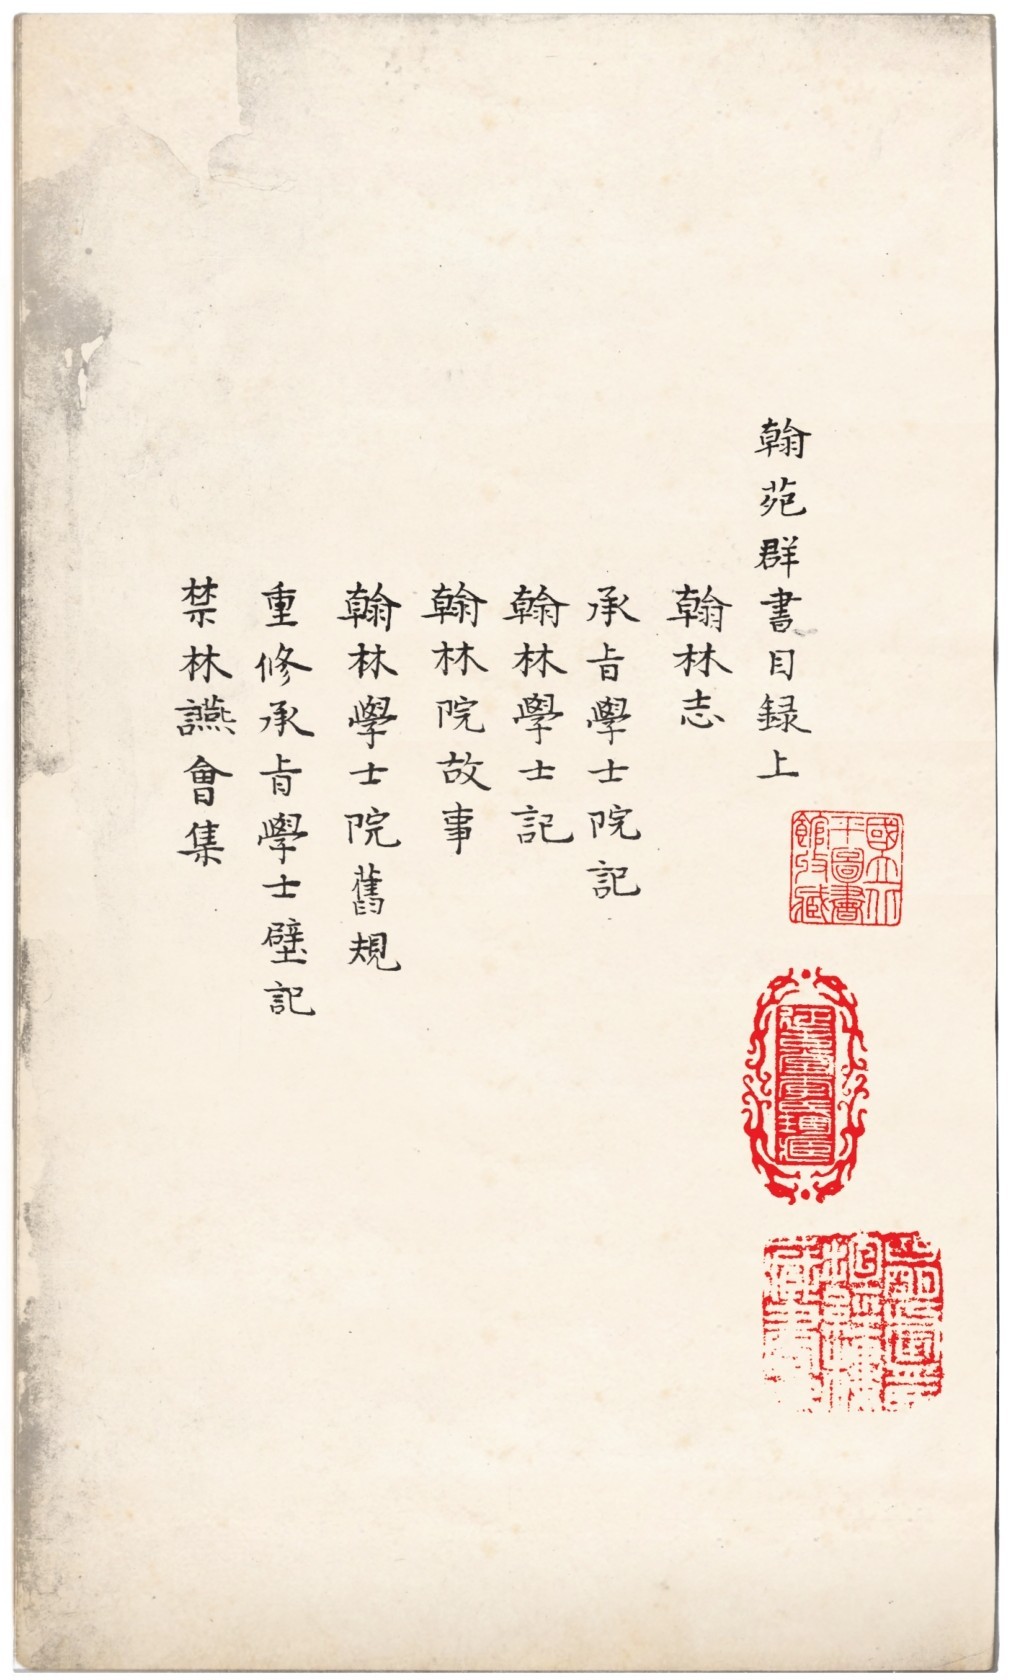 翰苑群書目録上
翰林志
承旨學士院記
翰林學士記
翰林院故事
翰林學士院舊規
重修承旨學士壁記
禁林讌會集
國立北
平圖書
館收藏